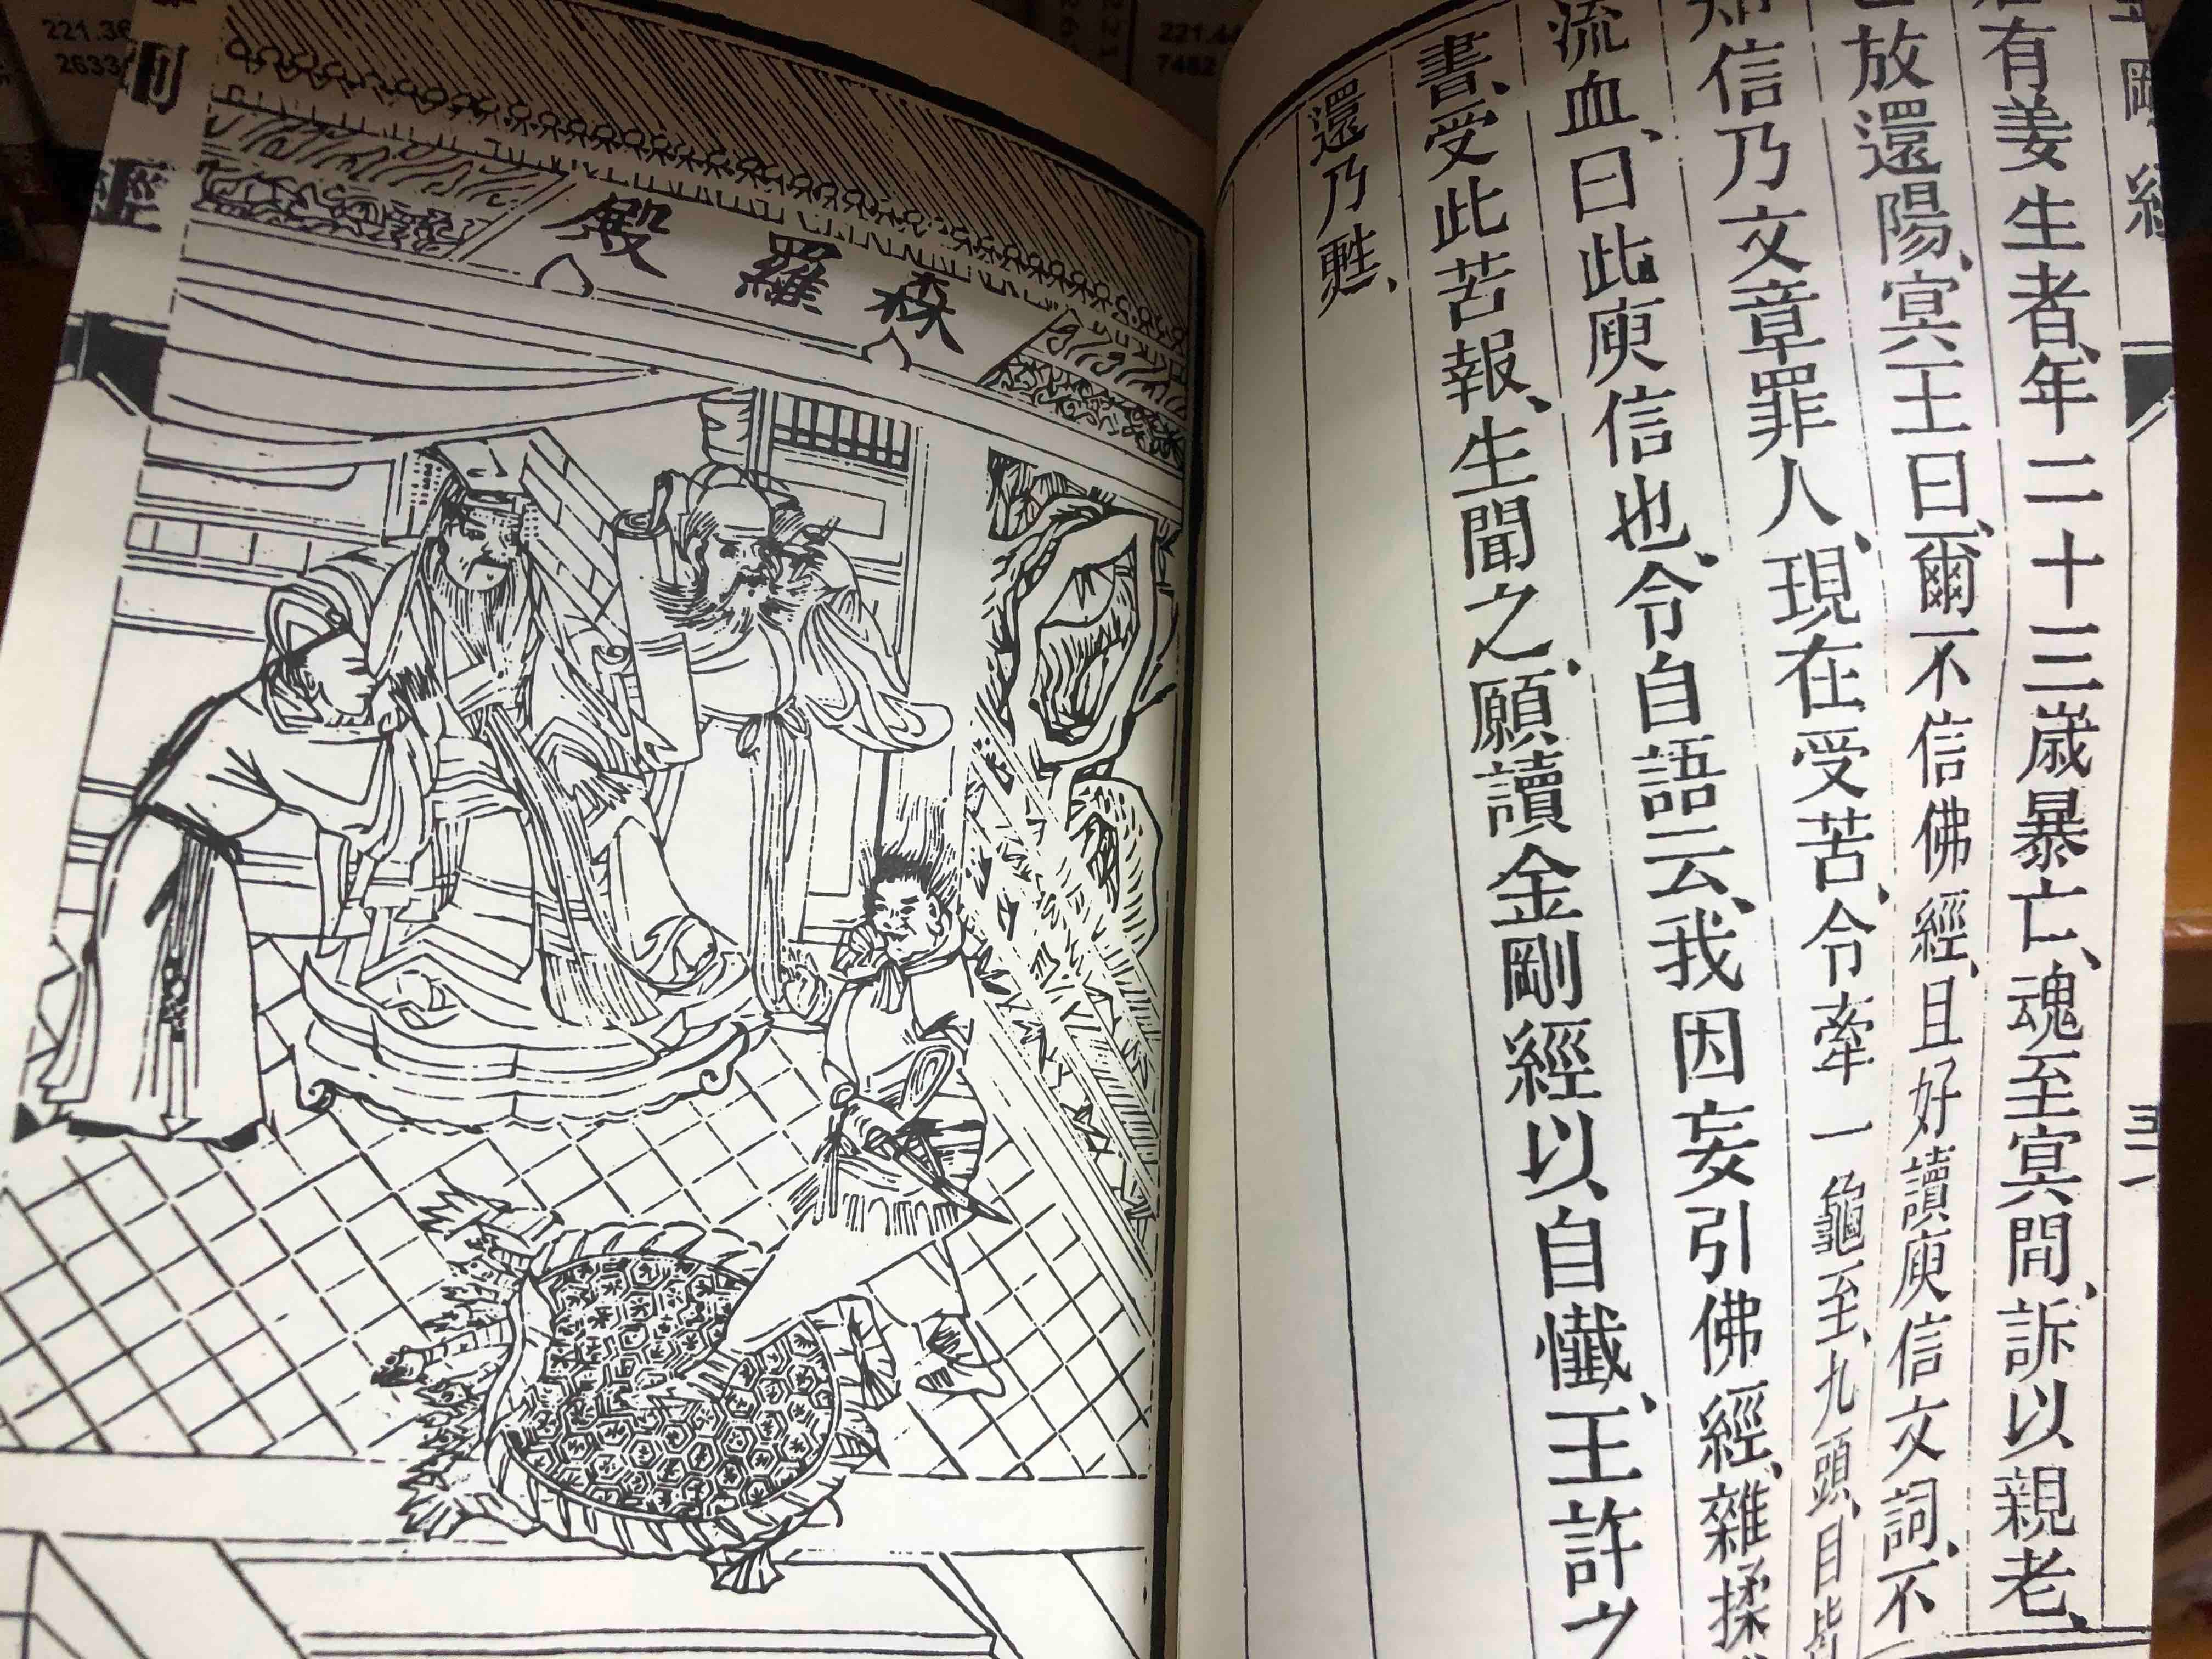 金剛經
有姜生者、年二十三歲暴亡、魂至冥間、訴以親老、
放還陽、冥王曰、爾不信佛經、且好讀庾信文詞、不
知信乃文章罪人、現在受苦、令牽一龜至、九頭、目皆
流血、曰此庾信也、令自語云、我因妄引佛經、雜揉
書、受此苦報、生聞之、願讀金剛經以自懺、王許之
還乃甦、
森羅殿
經
221.36
2633
221.44
7482